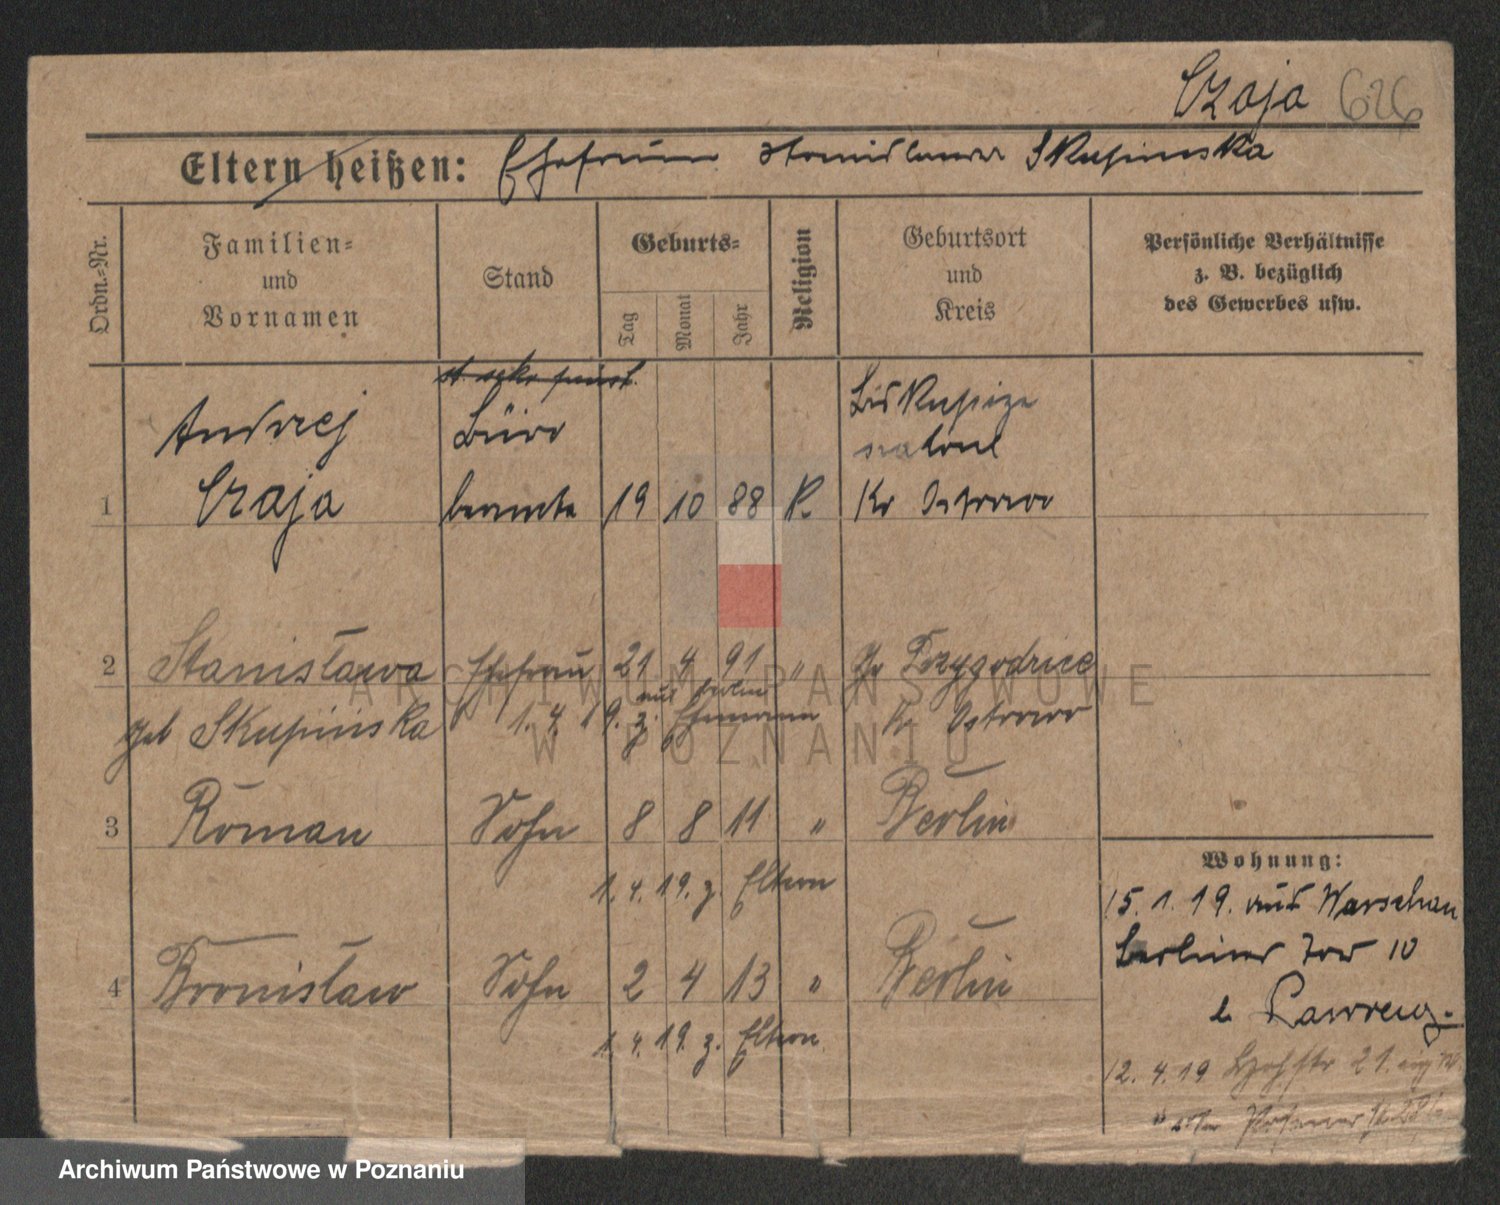 Czaja 626
Eltern heißen: Ehefrau Stanislawa Skupinska
Ordn.-Nr.
Familien-
und
Vornamen
Stand
Geburts-
Tag
Monat
Jahr
Religion
Geburtsort
und
Kreis
Persönliche Verhältnisse
z. B. bezüglich
des Gewerbes usw.
Andrzej
Büro
1 Czaja beamte 19 10 88 K. Kr Ostrowo
2 Stanisława Ehefrau 21 4 91 " Przygodzice
aus Berlin
geb Skupińska 1. 4. 19. z. Ehemann Kr Ostrowo
3 Roman Sohn 8 8 11 " Berlin
1. 4. 19. z. Eltern
4 Bronisław Sohn 2 4 13 " Berlin
1. 4. 19. z. Eltern
Wohnung:
15. 1. 19. aus Warschau
Berliner 10
b Lawrenz.
12. 4. 19 21.
ARCHIWUM PAŃSTWOWE
W POZNANIU
Archiwum Państwowe w Poznaniu